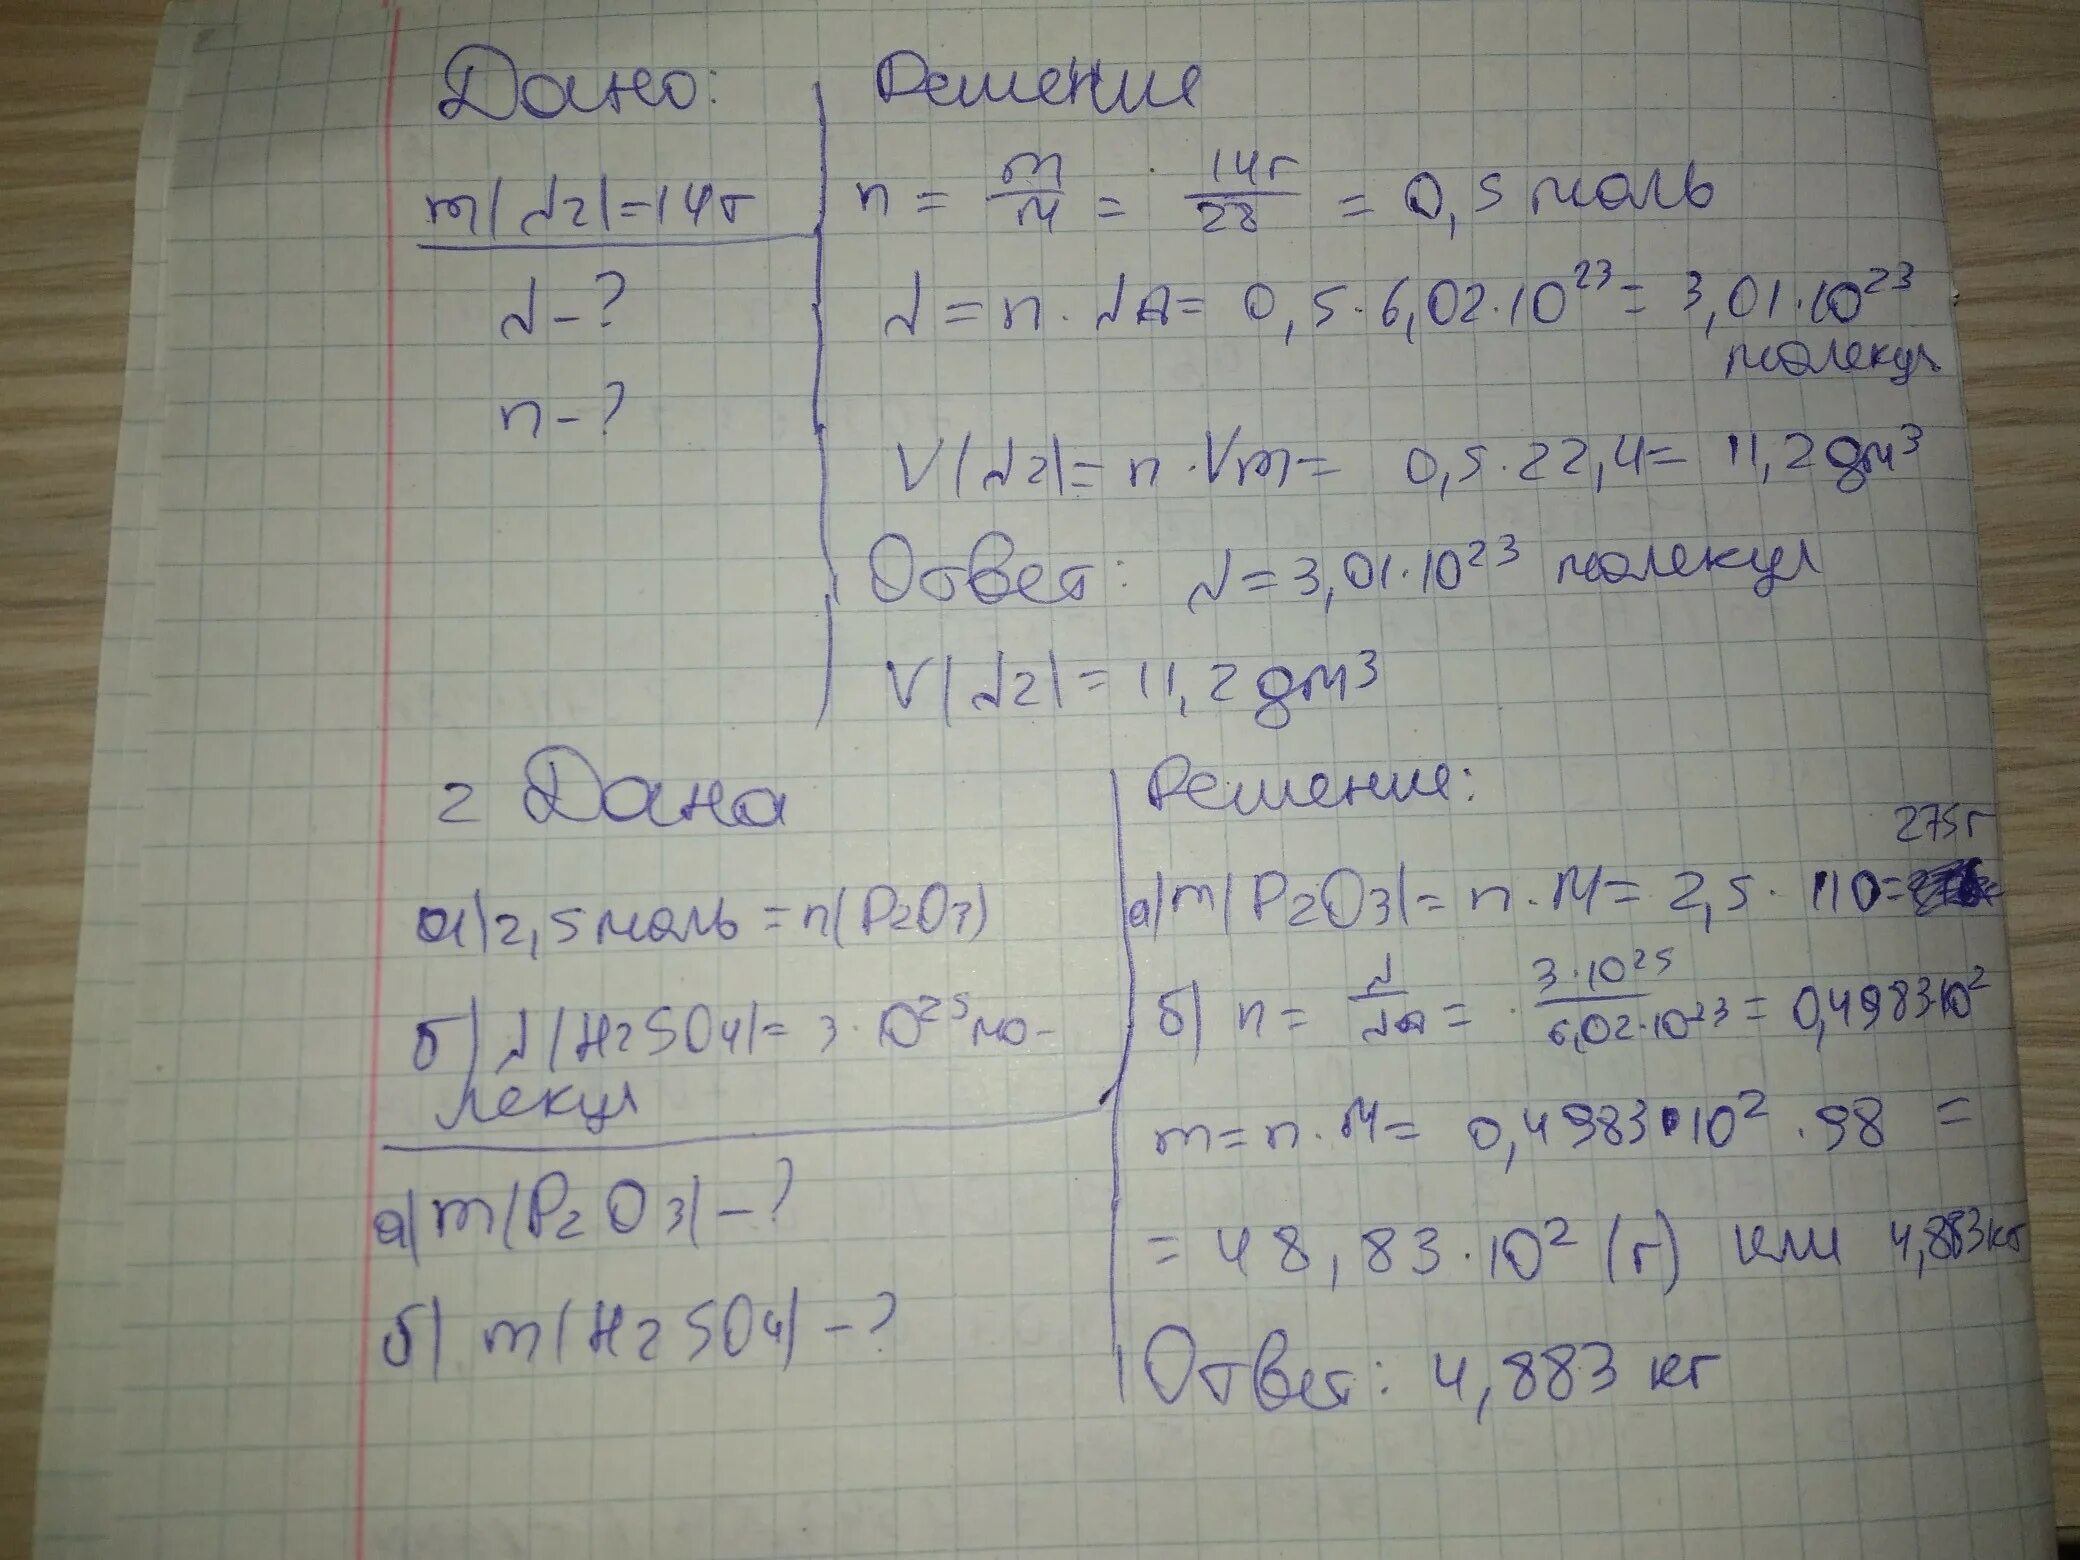 Дано:
m(N2)=14г
N-?
n-?
Решение
n = m/M = 14г/28 = 0,5 моль
N = n · NA = 0,5 · 6,02 · 10²³ = 3,01 · 10²³
молекул
V(N2) = n · Vm = 0,5 · 22,4 = 11,2 дм³
Ответ: N = 3,01 · 10²³ молекул
V(N2) = 11,2 дм³
2 Дана
а) 2,5 моль = n(P2O3)
б) N(H2SO4) = 3 · 10²⁵ мо-
лекул
а) m(P2O3) - ?
б) m(H2SO4) - ?
Решение:
275г
а) m(P2O3) = n · M = 2,5 · 110 =
б) n = N/NA = 3·10²⁵/6,02·10²³ = 0,4983·10²
m = n · M = 0,4983 · 10² · 98 =
= 48,83 · 10² (г) или 4,883 кг
Ответ: 4,883 кг